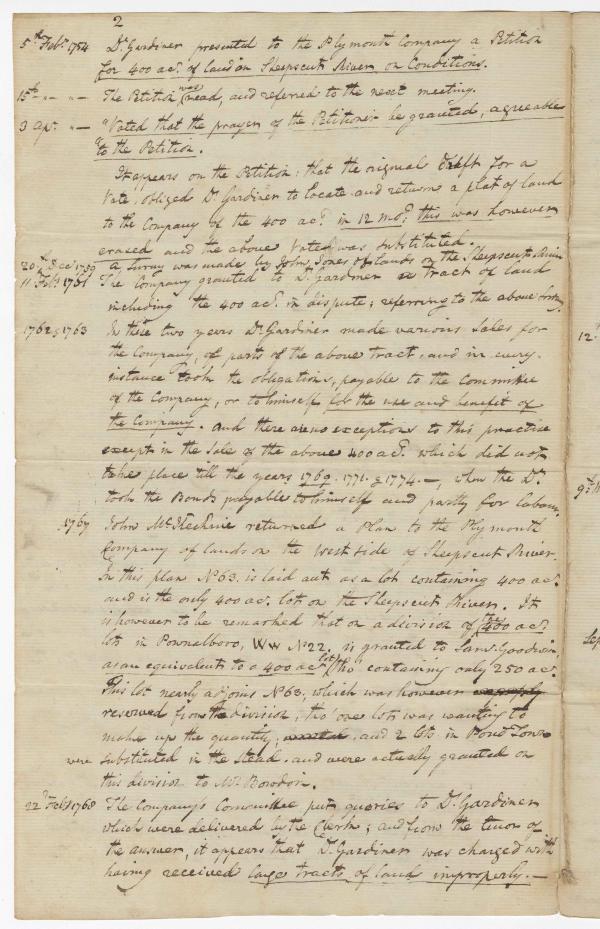 2
5th Feby 1754 Dr Gardiner presented to the Plymouth Company a Petition
for 400 acs. of land on Sheepscut River on Conditions.
15th " — " — The Petition was read, and referred to the next meeting.
3 Apr. " — "Voted that the prayer of the Petitioner be granted, agreeable
"to the Petition.
It appears on the Petition: that the original Draft for a
Vote, obliged Dr Gardiner to locate and return a plat of land
to the Company of the 400 acs. in 12 mos. this was however
erazed and the above Vote was Substituted.
20th Dec 1759 a Survy was made by John Jones of lands on the Sheepscut River
11 Feby 1761 The Company granted to Dr Gardiner a tract of land
including the 400 acs. in dispute; referring to the above
1762 & 1763 In these two years Dr Gardiner made various Sales for
the Company, of parts of the above tract, and in every
instance took the obligations, payable to the Committee
of the Company, or to himself for the use and benefit of
the Company. And there are no exceptions to this practice
except in the Sale of the above 400 acs. which did not
take place till the years 1769. 1771. & 1774. —, when the Dr.
took the Bonds payable to himself and partly for labour.
1767 John McKechnie returned a Plan to the Plymouth
Company of lands on the West side of Sheepscut River.
In this plan No 63. is laid out as a lot containing 400 acs.
and is the only 400 ac. lot on the Sheepscut River. It
is however to be remarked that on a division of the 400 acs.
lots in Pownalboro, WW No 22. is granted to Saml. Goodwin,
as an equivalent to a 400 ac. lot tho' containing only 250 acs.
This lot nearly adjoins No 63; which was however
reserved from the division, tho' one lot was wanting to
make up the quantity; and 2 lots in Pownl Town
were substituted in the stead. and were actually granted on
this division to Mr. Bowdoin.
22d Feby 1768 The Company's Committee put queries to Dr. Gardiner
which were delivered by the Clerk; and from the tenor of
the answer, it appears that Dr. Gardiner was charged with
having received large tracts of land improperly. —
12.
9th
Sep